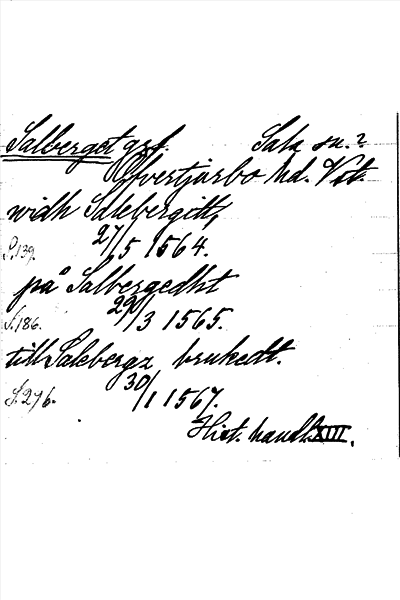 Salberget grf. Sala sn.?
Öfvertjurbo hd. Vstm.
widh Salebergitt,
S. 139. 27/5 1564.
på Salbergedht
S. 186. 29/3 1565.
till Salebergz brukedt.
S. 276. 30/1 1567.
Hist. handl. XIII.